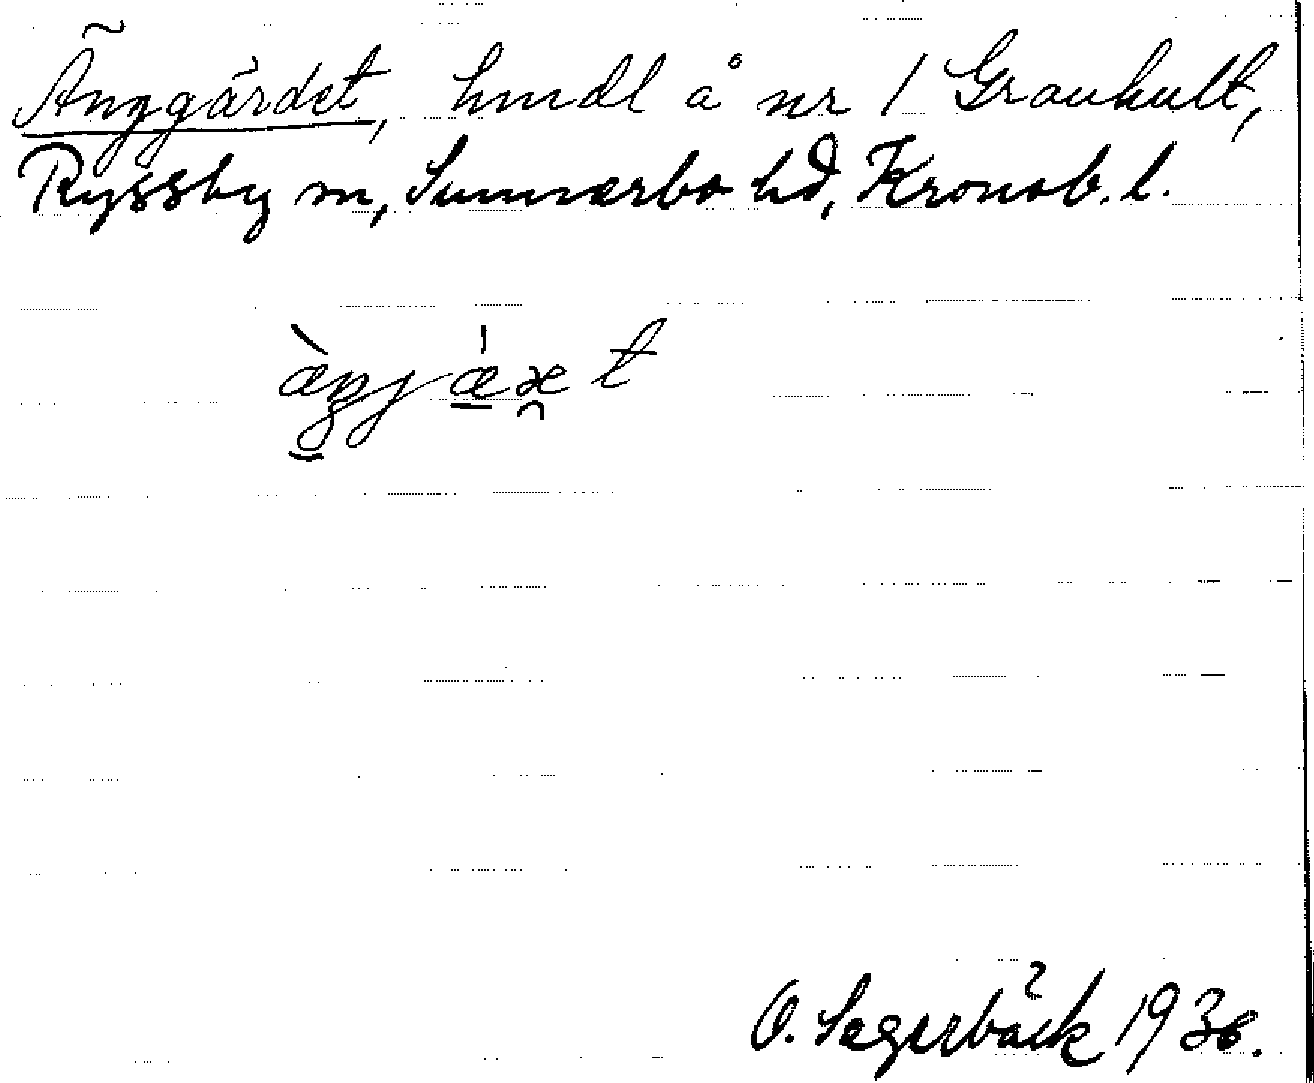 Änggärdet, hmdl å nr 1 Grauhult,
Ryssby sn, Sunnerbo hd, Kronob. l.
O. Segerbäck 1936.